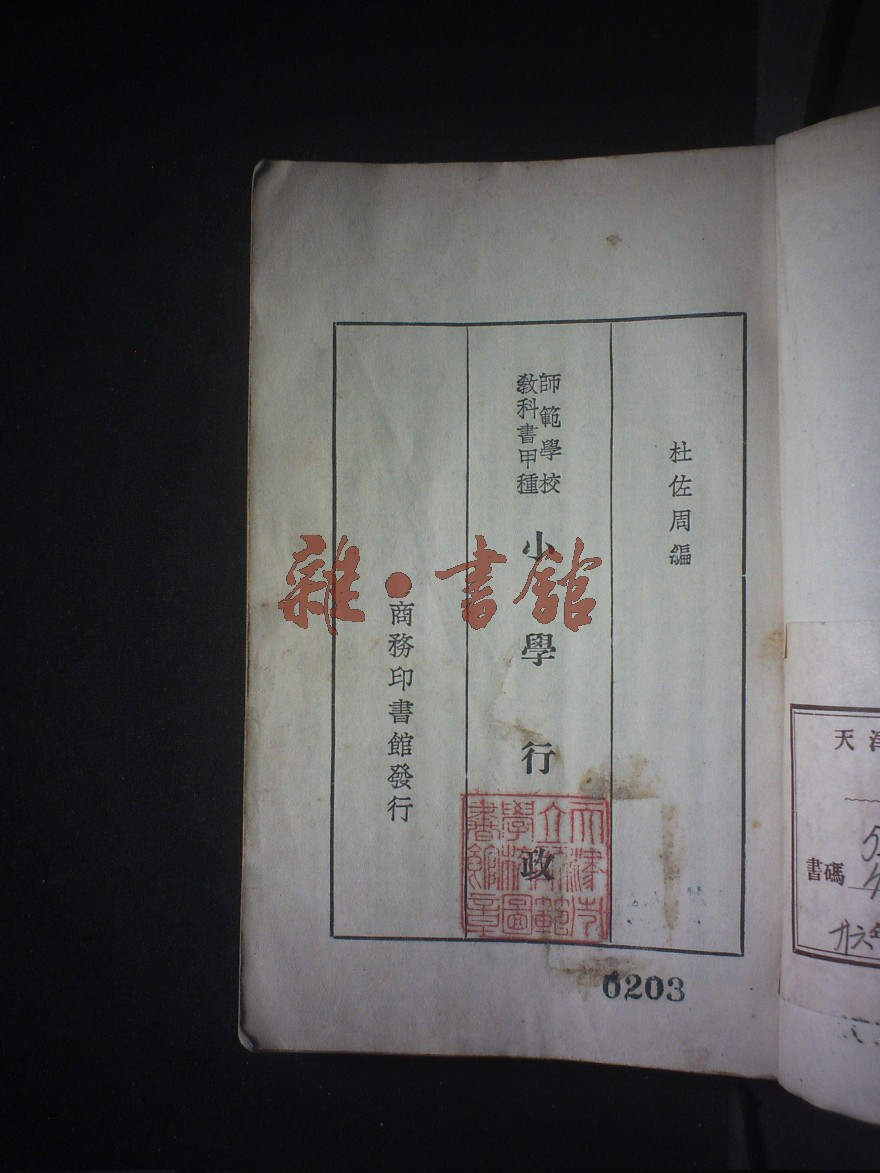 杜佐周編
師範學校
教科書甲種
小學行政
商務印書館發行
天津市立師範學校圖書館章
0203
雜·書館
天津
書碼
廿六年